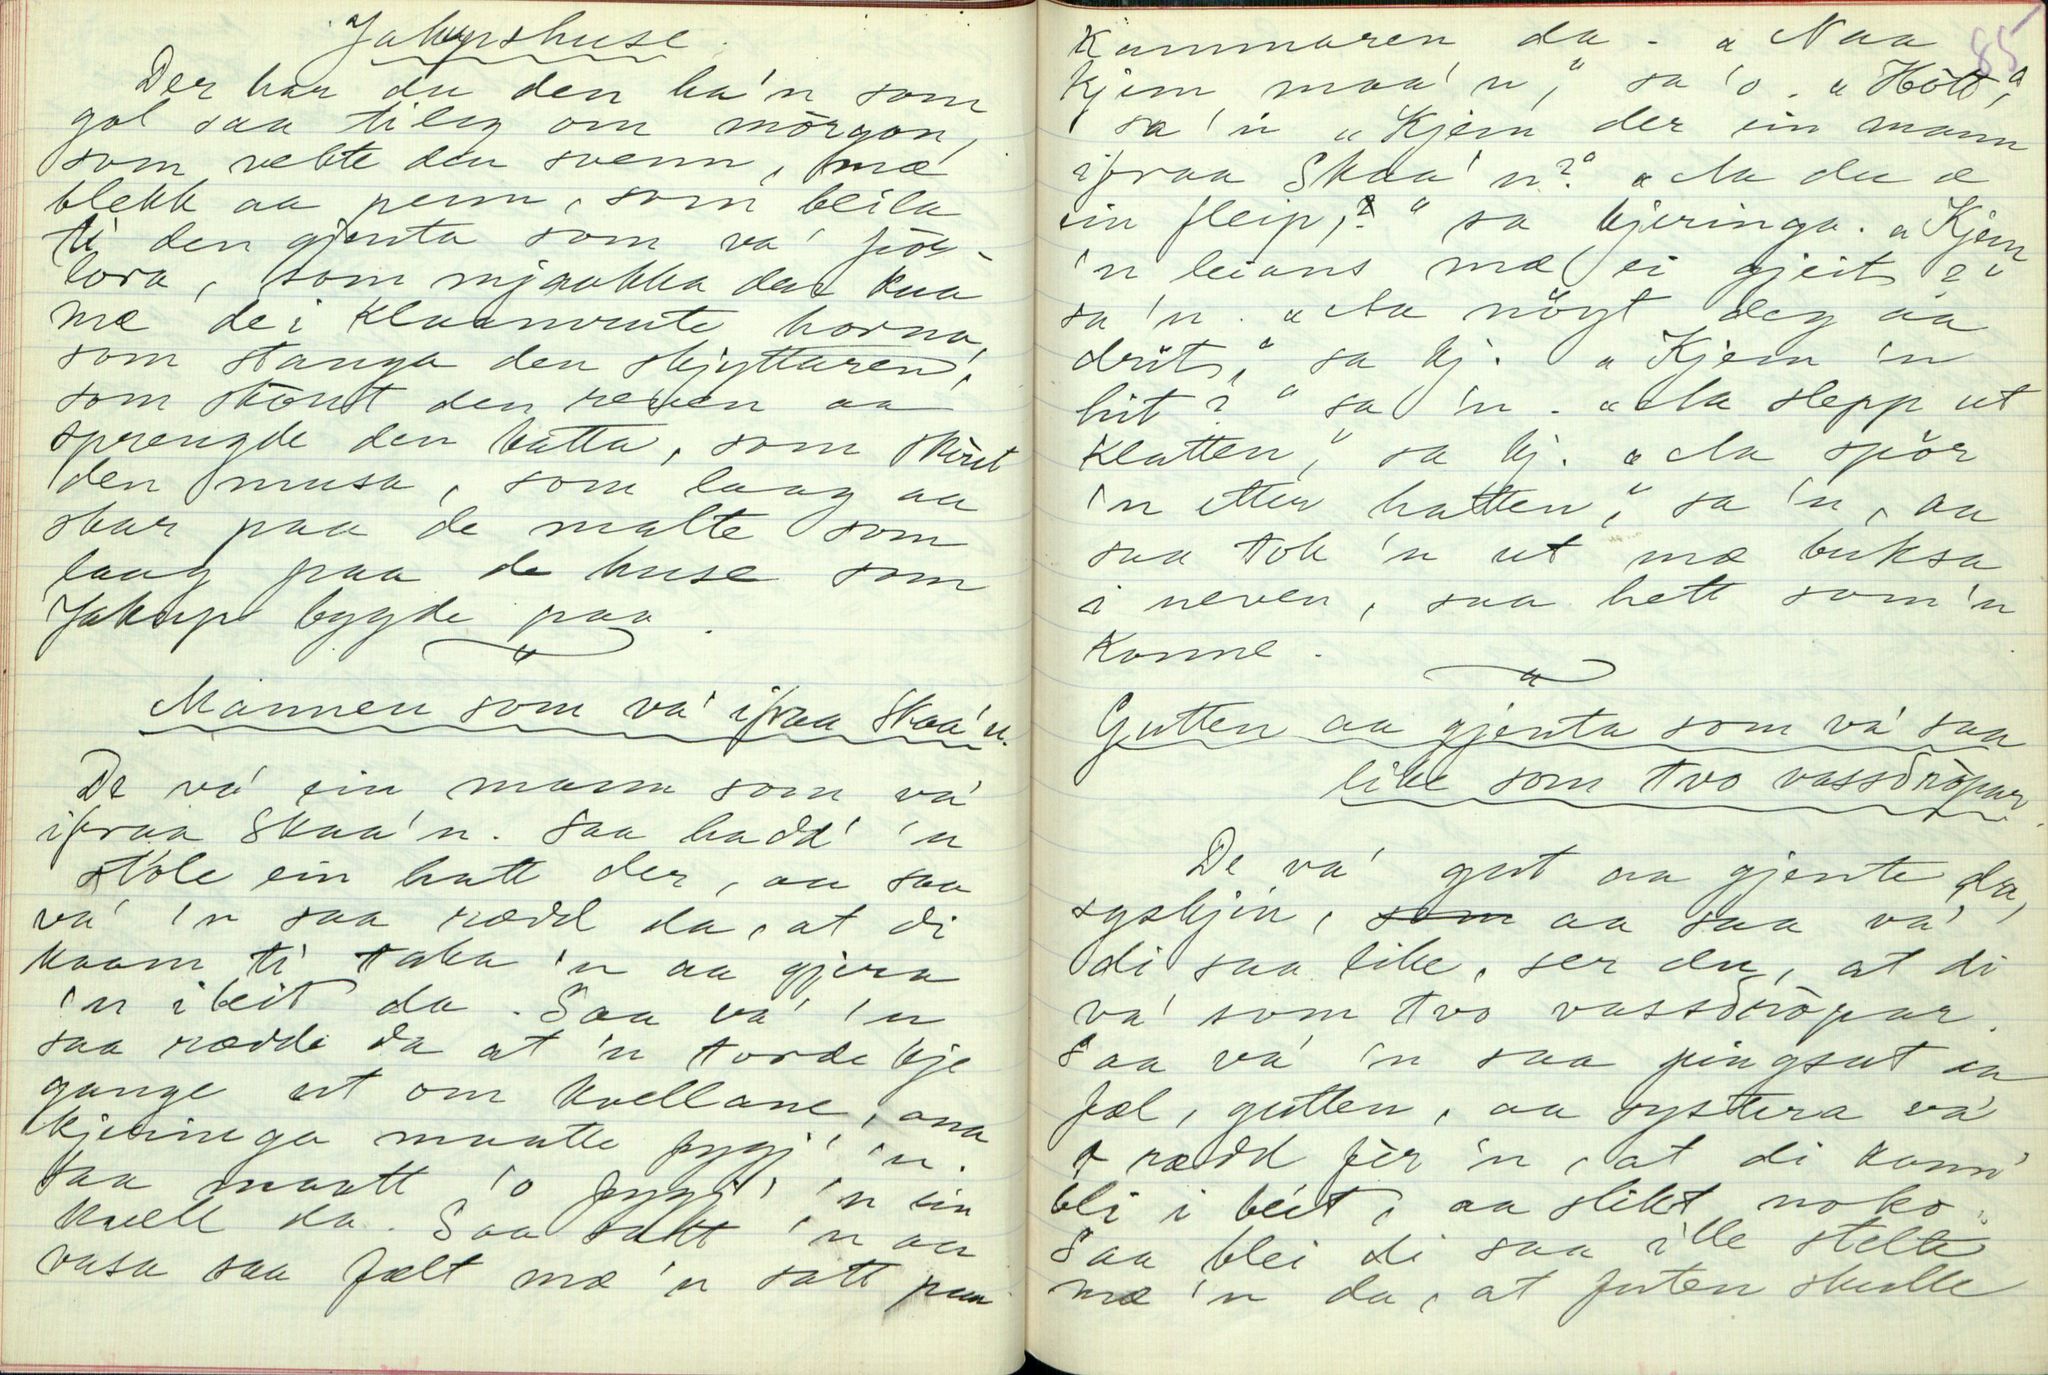 Jakupshuse.
Der har du den ha'n som
gol saa tileg om mörgon,
som vekte den svenn, mæ
blekk aa penn, som beila
ti den gjenta som va' fös-
lora, som mjaakka dar kua
mæ dei klaanvrute horna,
som stanga den skjyttaren,
som skout den reven aa
sprengde den katta, som skout
den musa, som laag aa
skar paa de malte som
laag paa de huse som
Jakup bygde paa.
Mannen som va' ifraa Skaa'n.
De va' ein mann som va'
ifraa Skaa'n. Saa hadd' 'n
stole ein hatt der, aa saa
va' 'n saa rædd da, at di
kaam ti taka 'n aa gjera
'n i beit da. Saa va' 'n
saa rædde da at 'n torde kje
gange ut om kvellane, ana
kjeringa maatte fygj' 'n.
Saa maatt 'o fygj' 'n ein
kvell da. Saa satt 'n aa
vasa saa fælt mæ 'n satt paa
85
Kammaren da. "Naa
kjem maa'n," sa 'o. "Hött,"
sa 'n "Kjem der ein mann
ifraa Skaa'n?" "Aa du æ
ein fleip," sa kjeringa. "Kjem
'n leians mæ ei gjeit?"
sa 'n. "Aa nöyt deg aa
drit," sa kj. "Kjem 'n
hit?" sa 'n. "Aa slepp ut
klatten," sa kj. "Aa spör
'n etter hatten," sa 'n, aa
saa tok 'n ut mæ buksa
i neven, saa hett som 'n
konne.
Gutten aa gjenta som va' saa
like som tvo vassdröpar.
De va' gut aa gjente da,
syskjin, aa saa va'
di saa like, ser du, at di
va' som tvo vassdröpar.
Saa va' 'n saa pingsut aa
fæl, gutten, aa systera va'
rædd fèr 'n, at di konn'
bli i beit, aa slikt noko.
Saa blei di saa ille stelt
mæ 'n da, at futen skulle